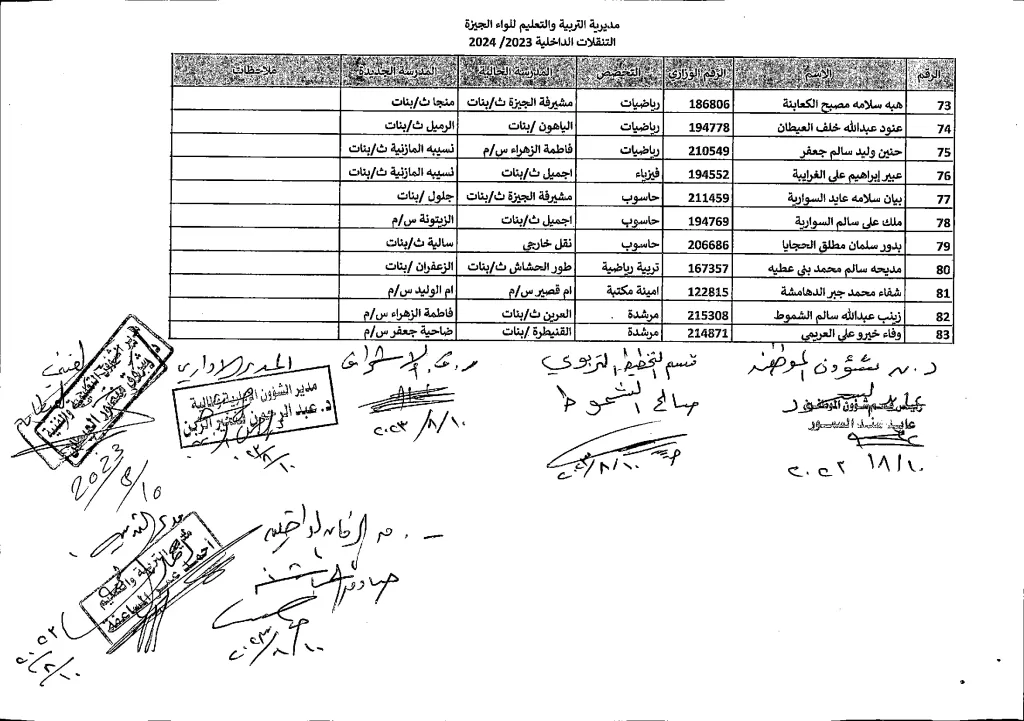 مديرية التربية والتعليم للواء الجيزة
التنقلات الداخلية 2023/ 2024
الرقم الإسم الرقم الوزاري التخصص المدرسة الحالية المدرسة الجديدة ملاحظات
73 هبه سلامه مصبح الكعابنة 186806 رياضيات مشيرفة الجيزة ث/بنات منجا ث/بنات
74 عنود عبدالله خلف العيطان 194778 رياضيات الياهون /بنات الرميل ث/بنات
75 حنين وليد سالم جعفر 210549 رياضيات فاطمة الزهراء س/م نسيبه المازنية ث/بنات
76 عبير إبراهيم علي الغرايبة 194552 فيزياء اجميل ث/بنات نسيبه المازنية ث/بنات
77 بيان سلامه عايد السوارية 211459 حاسوب مشيرفة الجيزة ث/بنات جلول /بنات
78 ملك علي سالم السوارية 194769 حاسوب اجميل ث/بنات الزيتونة س/م
79 بدور سلمان مطلق الحجايا 206686 حاسوب نقل خارجي سالية ث/بنات
80 مديحه سالم محمد بني عطيه 167357 تربية رياضية طور الحشاش ث/بنات الزعفران /بنات
81 شفاء محمد جبر الدهامشة 122815 امينة مكتبة ام قصير س/م ام الوليد س/م
82 زينب عبدالله سالم الشموط 215308 مرشدة العرين ث/بنات فاطمة الزهراء س/م
83 وفاء خيرو علي العريمي 214871 مرشدة القنيطرة /بنات ضاحية جعفر س/م
شؤون الموظفين
قسم التخطيط التربوي
المدير الاداري
رئيس قسم شؤون الموظفين
صالح الشموط
مدير الشؤون الادارية والمالية
د. عبد الرحمن
٢٠٢٣/٨/١٠
٢٠٢٣/٨/١٠
٢٠٢٣/٨/١٠
2023/8/10
مدير التربية والتعليم
٢٠٢٣/٨/١٠